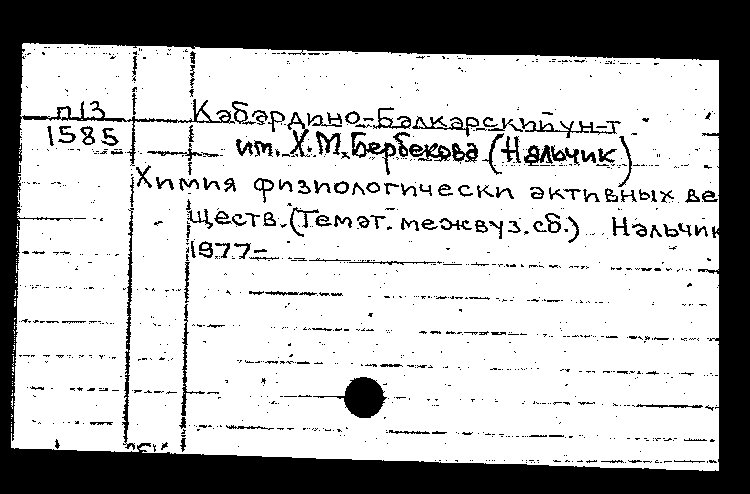 п13
1585
Кабардино-Балкарский ун-т
им. Х.М.Бербекова (Нальчик)
Химия физиологически активных ве
ществ. (Темат. межвуз. сб.) Нальчик
1977-